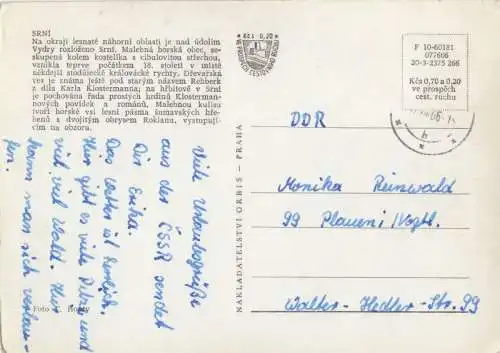 SRNÍ
Na okraji lesnaté náhorní oblasti je nad údolím
Vydry rozloženo Srní. Malebná horská obec, se-
skupená kolem kostelíka s cibulovitou střechou,
vznikla teprve počátkem 18. století v místě
někdejší stodůlecké královácké rychty. Dřevařská
ves je známa ještě pod starým názvem Rehberk
z díla Karla Klostermanna; na hřbitově v Srní
je pochována řada prostých hrdinů Klosterman-
nových povídek a románů. Malebnou kulisu
tvoří horské vsi lesní pásma šumavských hřbe-
nů s dvojitým obrysem Roklanu, vystupují-
cím na obzoru.
Viele Urlaubsgrüße
aus der ČSSR sendet
Dir Erika.
Das Wetter ist herrlich.
Hier gibt es viele Pilze und
viel, viel Wald. Hier
kann man sich verlau-
fen.
Foto
NAKLADATELSTVÍ ORBIS - PRAHA
Kčs 0,20
VE PROSPĚCH CESTOVNÍHO RUCHU
F 10-60181
077606
20-3-2375 266
Kčs 0,70 a 0,20
ve prospěch
cest. ruchu
DDR
Monika Reinwald
99 Plauen i/Vogtl.
Walter-Hedler-Str. 99